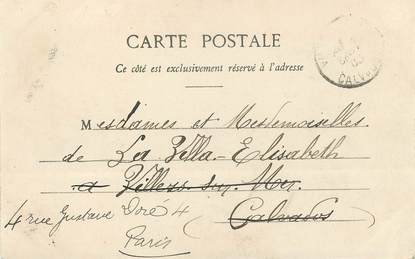 CARTE POSTALE
Ce côté est exclusivement réservé à l'adresse
CALV
Mesdames et Mesdemoiselles
de La Villa-Elisabeth
a Villers sur Mer
Calvados
4 rue Gustave Doré 4
Paris